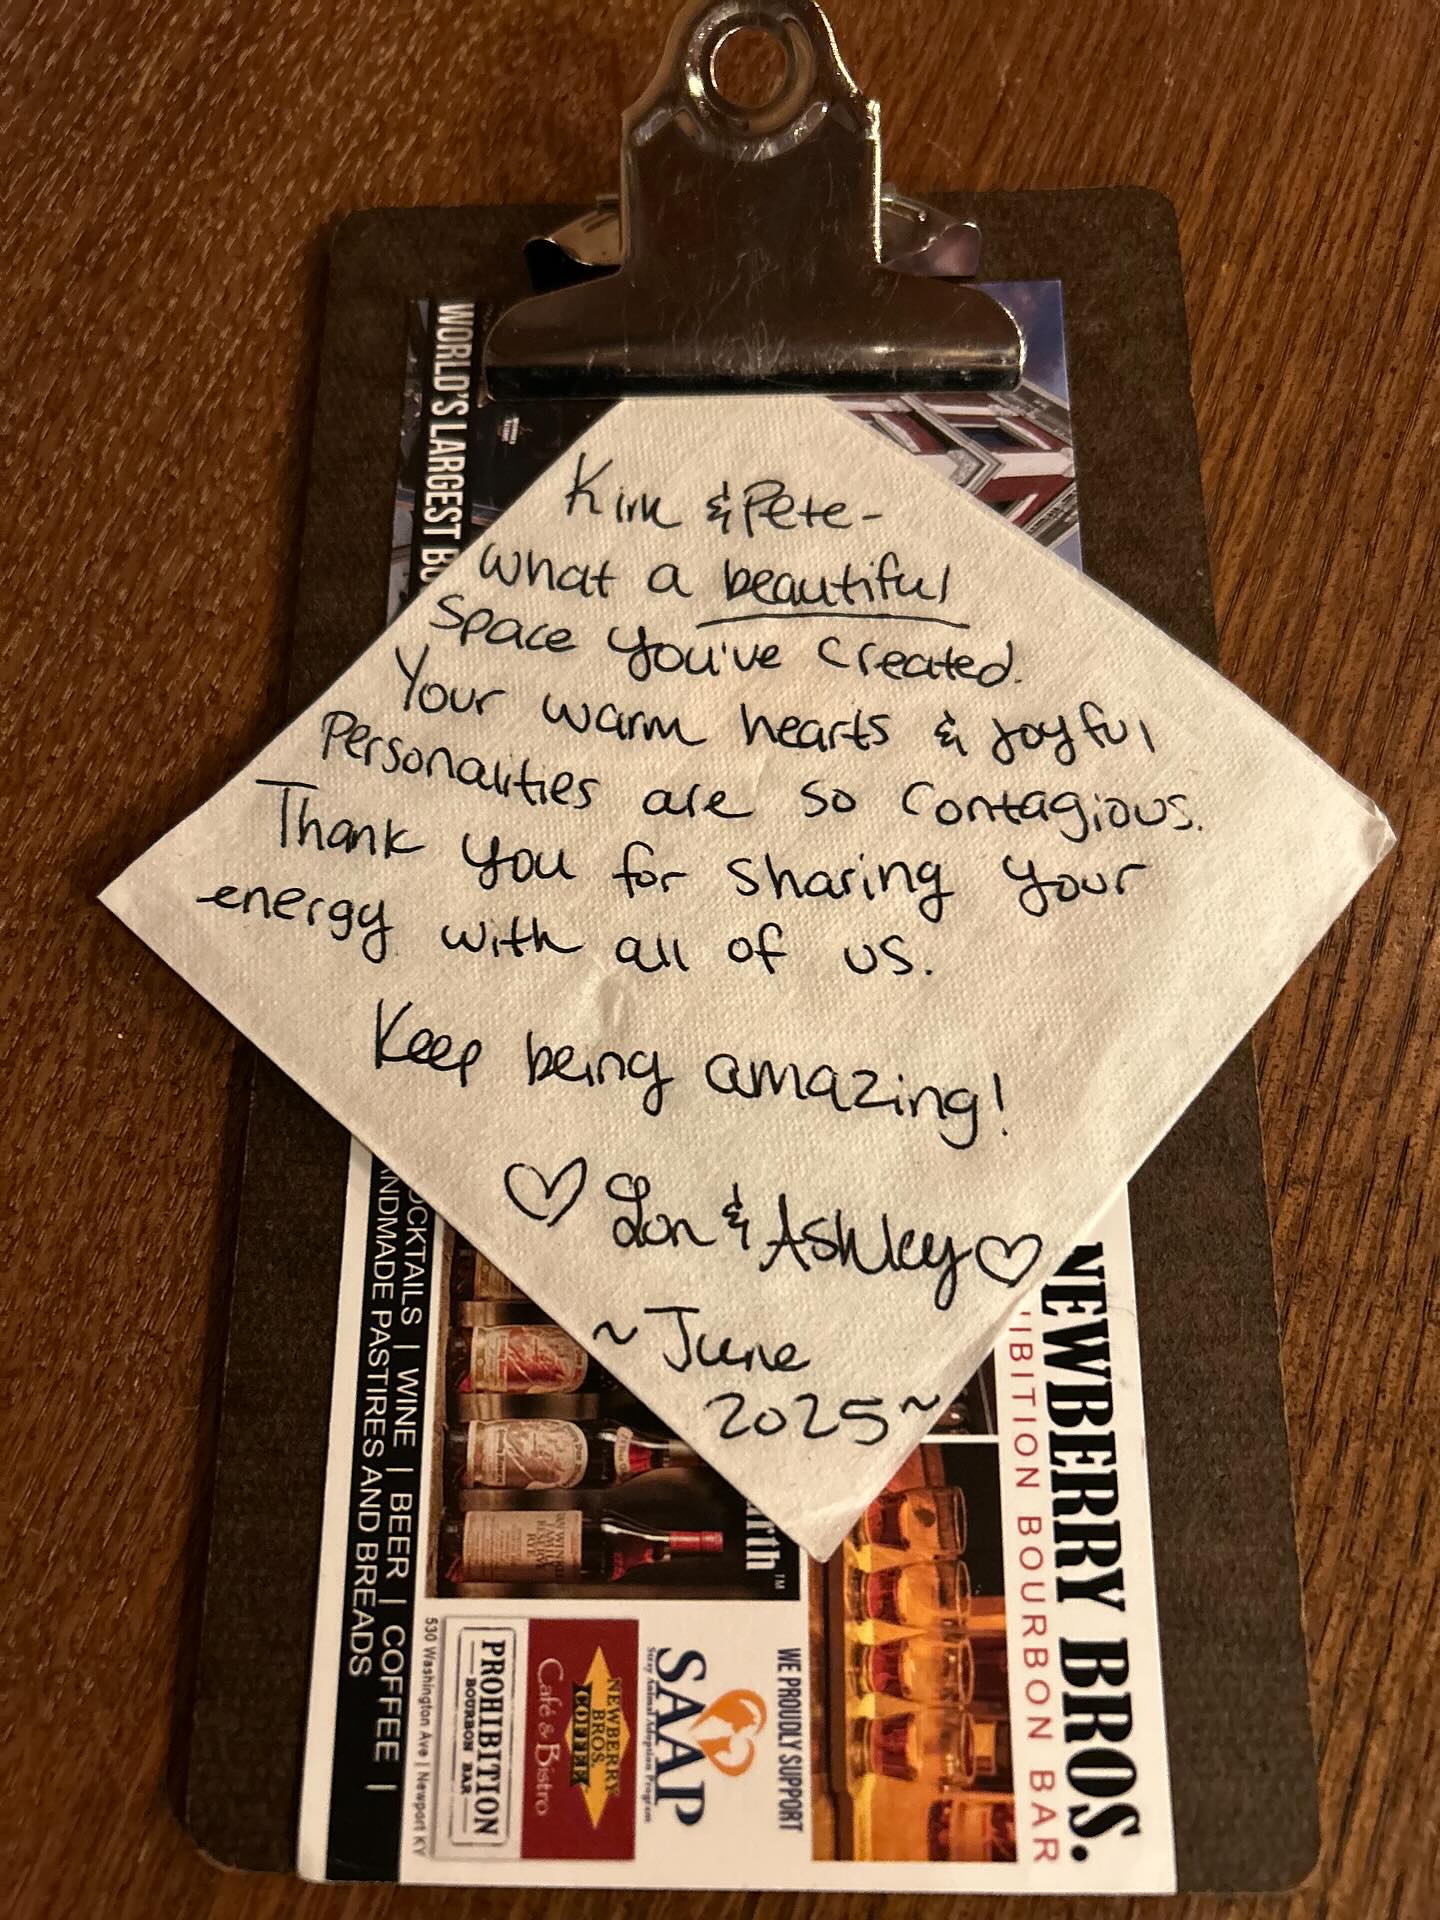 Kirk & Pete-
What a beautiful
space you've created.
Your warm hearts & joyful
personalities are so contagious.
Thank you for sharing your
energy with all of us.
Keep being amazing!
♡ Lon & Ashley ♡
~ June
2025 ~
WORLD'S LARGEST
NEWBERRY BROS.
IBITION BOURBON BAR
OCKTAILS | WINE | BEER | COFFEE |
ANDMADE PASTIRES AND BREADS
arth™
WE PROUDLY SUPPORT
SAAP
Stray Animal Adoption Program
NEWBERRY
BROS.
COFFEE
Café & Bistro
PROHIBITION
BOURBON BAR
530 Washington Ave | Newport KY